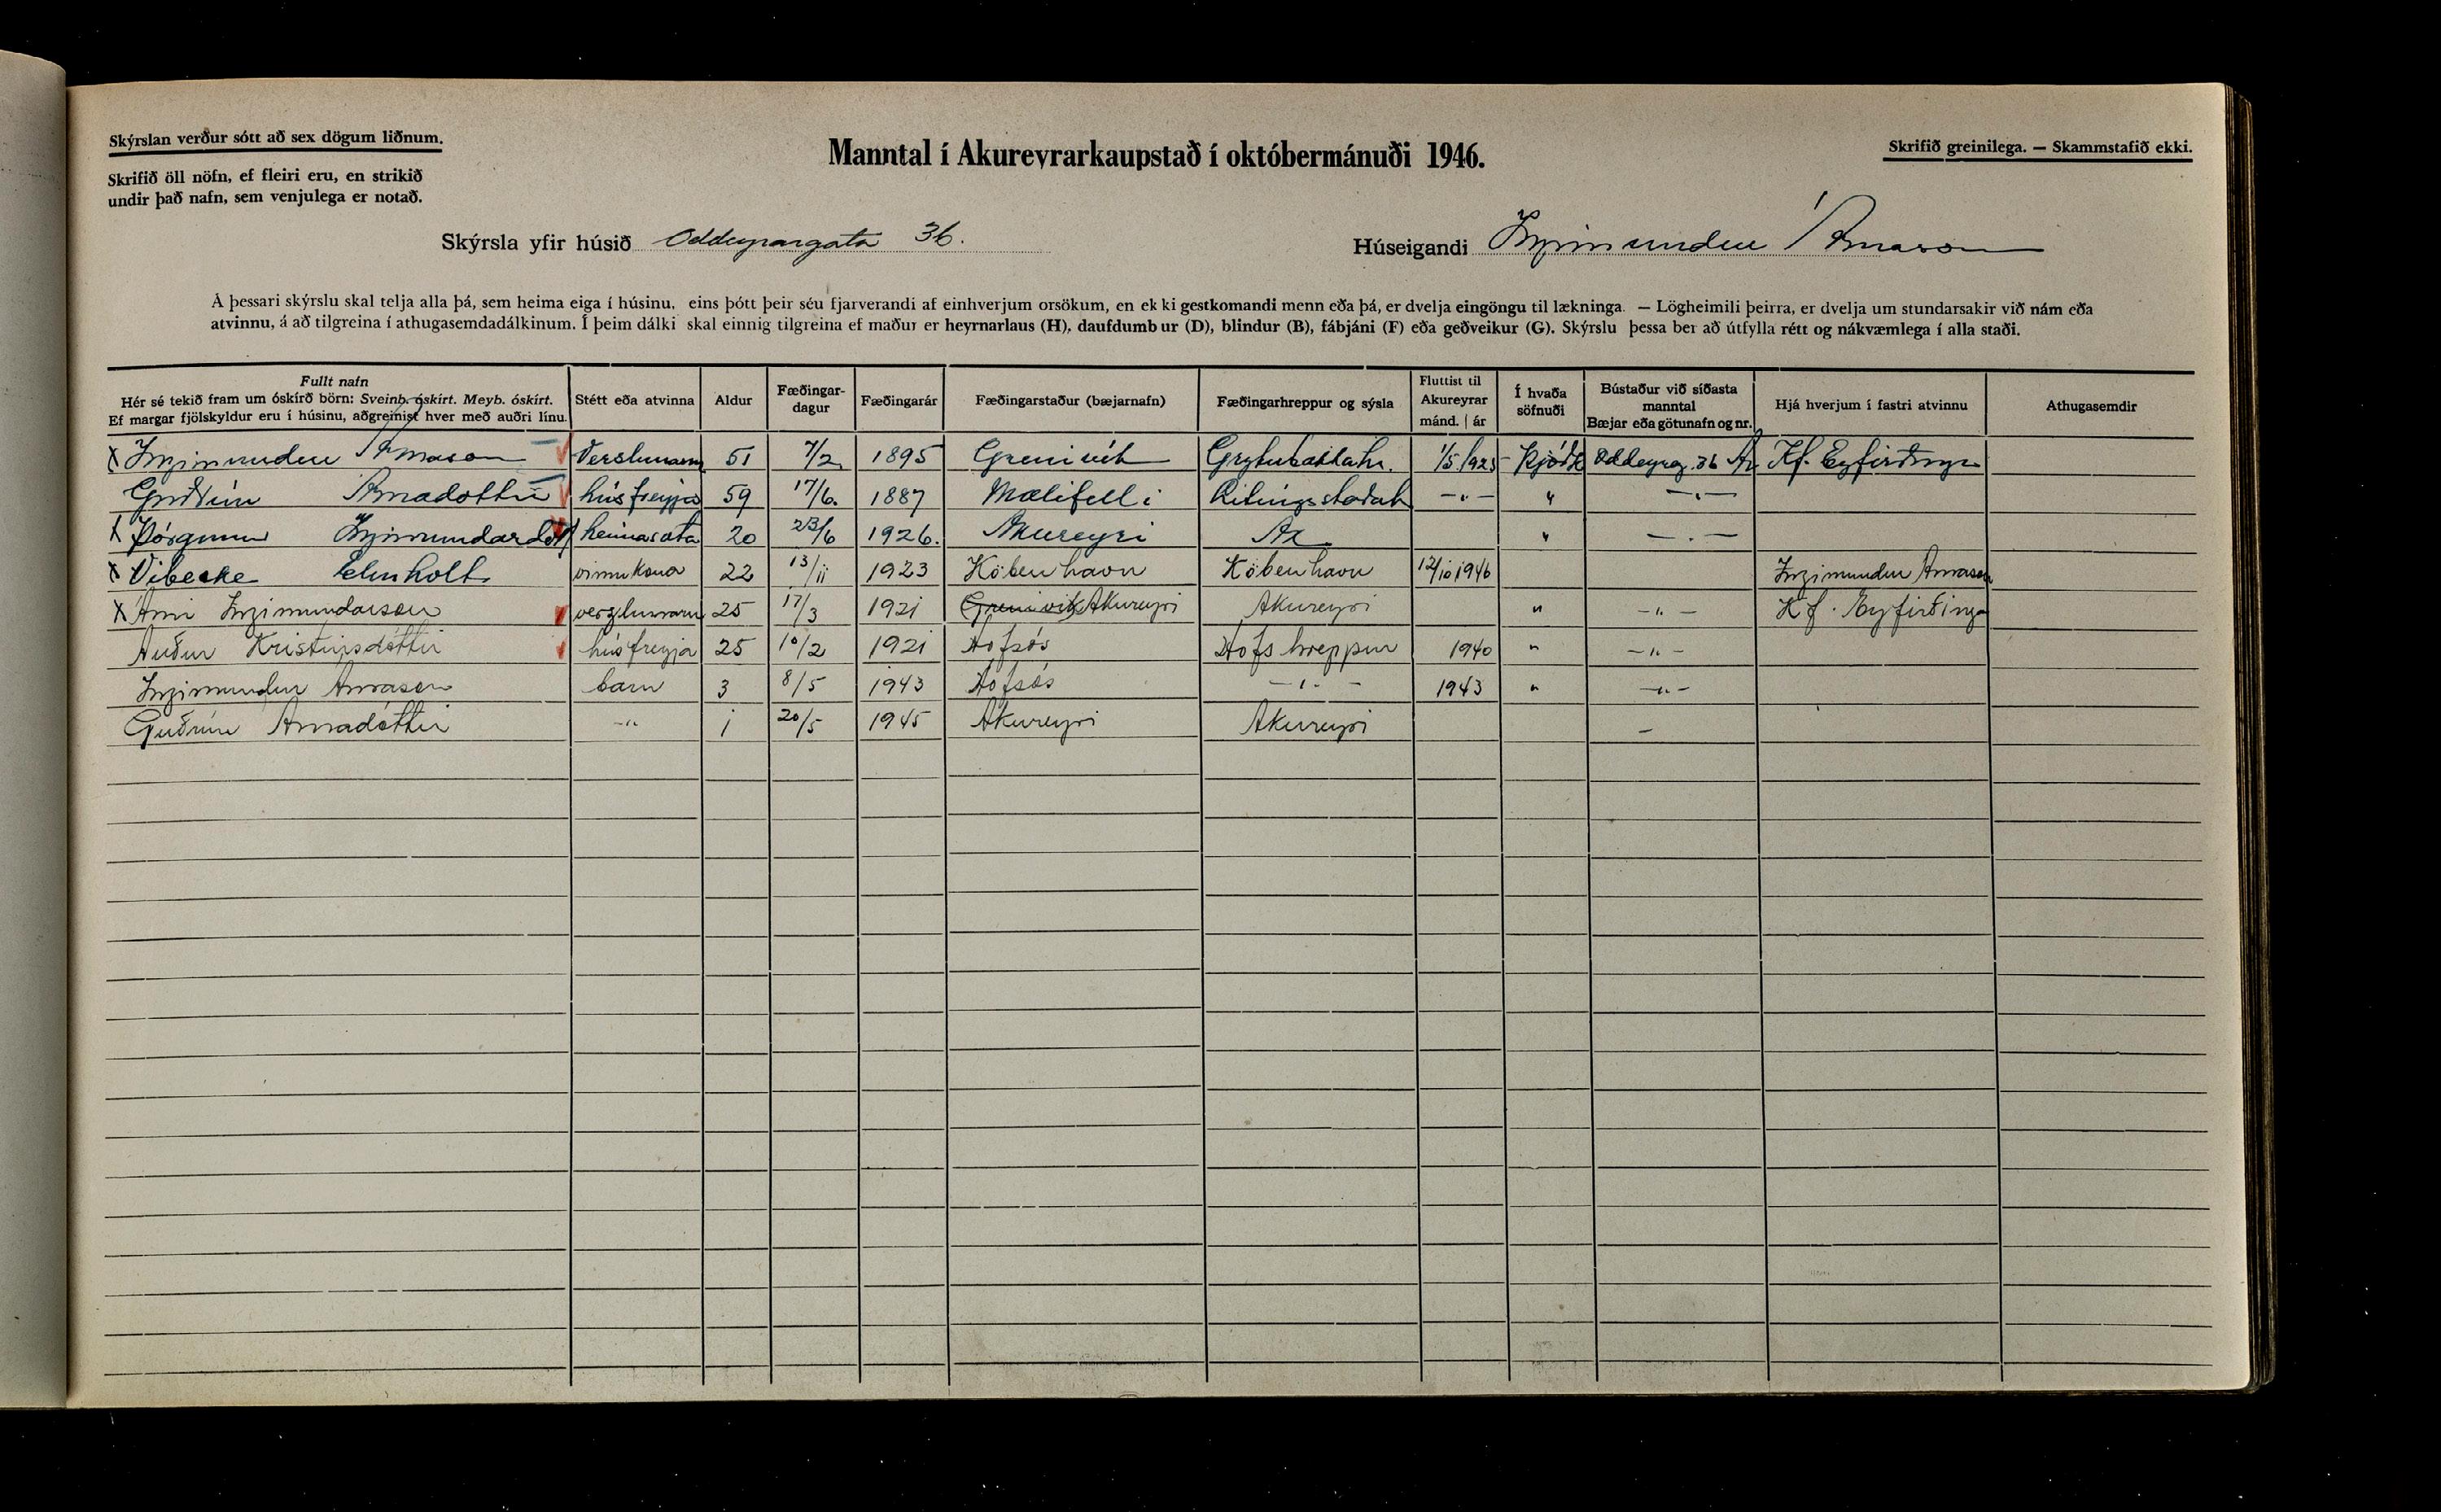 Skýrslan verður sótt að sex dögum liðnum.
Skrifið öll nöfn, ef fleiri eru, en strikið
undir það nafn, sem venjulega er notað.
Manntal í Akureyrarkaupstað í októbermánuði 1946.
Skrifið greinilega. — Skammstafið ekki.
Skýrsla yfir húsið Oddeyrargata 36.
Húseigandi Ingimundur Árnason
Á þessari skýrslu skal telja alla þá, sem heima eiga í húsinu, eins þótt þeir séu fjarverandi af einhverjum orsökum, en ekki gestkomandi menn eða þá, er dvelja eingöngu til lækninga. — Lögheimili þeirra, er dvelja um stundarsakir við nám eða
atvinnu, á að tilgreina í athugasemdadálkinum. Í þeim dálki skal einnig tilgreina ef maður er heyrnarlaus (H), daufdumbur (D), blindur (B), fábjáni (F) eða geðveikur (G). Skýrslu þessa ber að útfylla rétt og nákvæmlega í alla staði.
Fullt nafn
Hér sé tekið fram um óskírð börn: Sveinb. óskírt. Meyb. óskírt.
Ef margar fjölskyldur eru í húsinu, aðgreinist hver með auðri línu.
Stétt eða atvinna
Aldur
Fæðingar-
dagur
Fæðingarár
Fæðingarstaður (bæjarnafn)
Fæðingarhreppur og sýsla
Fluttist til
Akureyrar
mánd. | ár
Í hvaða
söfnuði
Bústaður við síðasta
manntal
Bæjar eða götunafn og nr.
Hjá hverjum í fastri atvinnu
Athugasemdir
X Ingimundur Árnason Verslunarm 51 7/2 1895 Grenivík Grýtubakkahr. 1/5 1925 Þjóðk Oddeyrg. 36 Ak Kf. Eyfirðinga
Guðrún Árnadóttir húsfreyja 59 17/6. 1887 Mælifelli Ritingsstaðah —"— " —"—
X Þórgunnur Ingimundardótt heimasæta 20 23/6 1926. Akureyri Ak " —"—
X Vibecke vinnukona 22 13/11 1923 Köbenhavn Köbenhavn 12/10 1946 Ingimundur Árnason
X Árni Ingimundarson verzlunarm 25 17/3 1921 Grenivík Akureyri Akureyri " —"— Kf. Eyfirðinga
Auður Kristinsdóttir húsfreyja 25 10/2 1921 Hofsós Hofshreppur 1940 " —"—
Ingimundur Árnason barn 3 8/5 1943 Hofsós —"— 1943 " —"—
Guðrún Árnadóttir —"— 1 20/5 1945 Akureyri Akureyri —